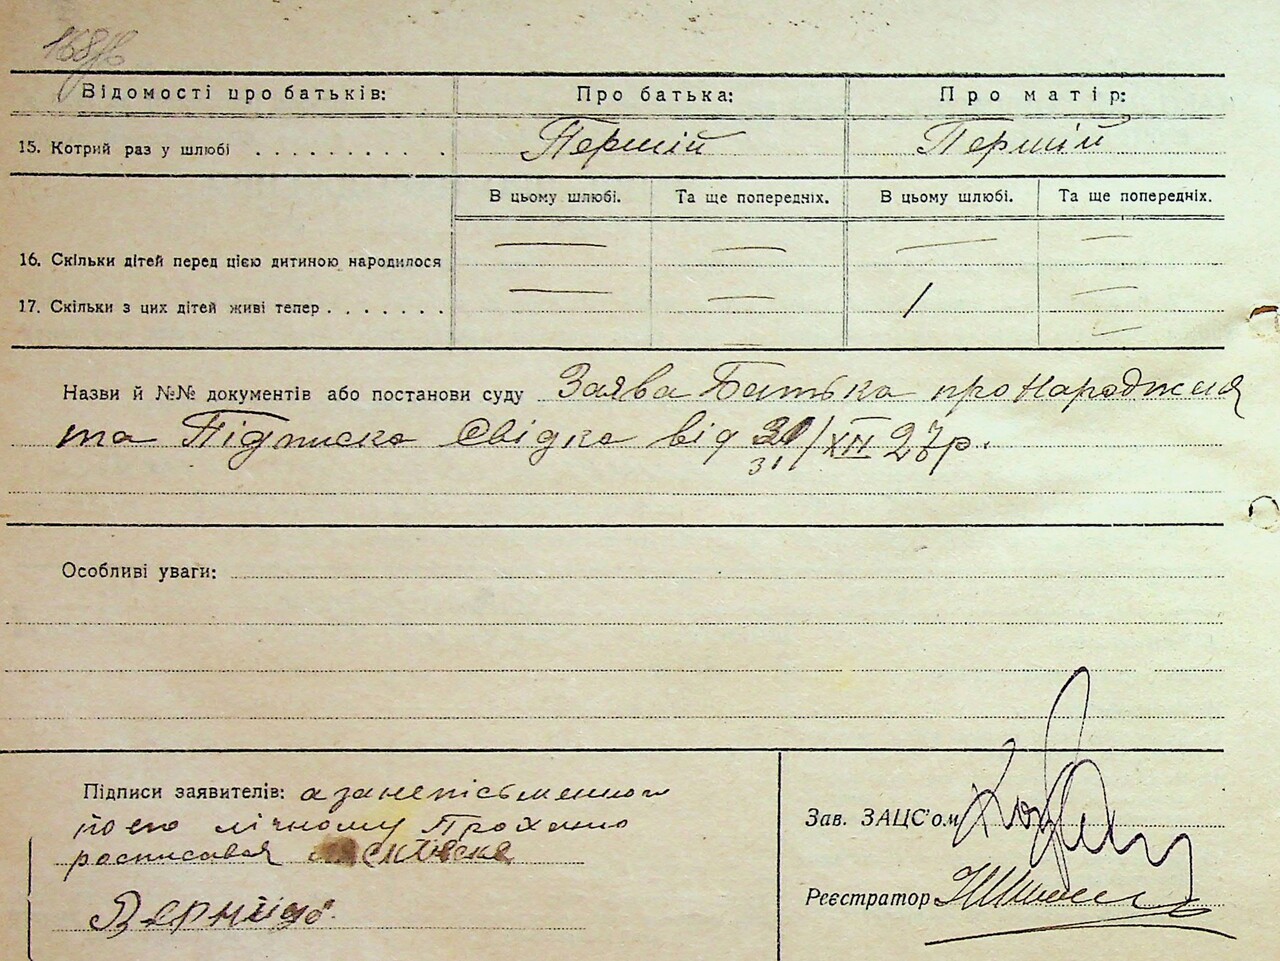 168
Відомості про батьків: Про батька: Про матір:
15. Котрий раз у шлюбі . . . . . . . . . . Перший Перший
В цьому шлюбі. Та ще попередніх. В цьому шлюбі. Та ще попередніх.
16. Скільки дітей перед цією дитиною народилося — — — —
17. Скільки з цих дітей живі тепер . . . . . . . — — / —
Назви й №№ документів або постанови суду Заява Батька про Народженя
та Підписка Свідка від 30/XII 27р.
31
Особливі уваги:
Підписи заявителів: а занепісьменного
по его лічному Прохано
росписався
Зав. ЗАЦС'ом
Реєстратор